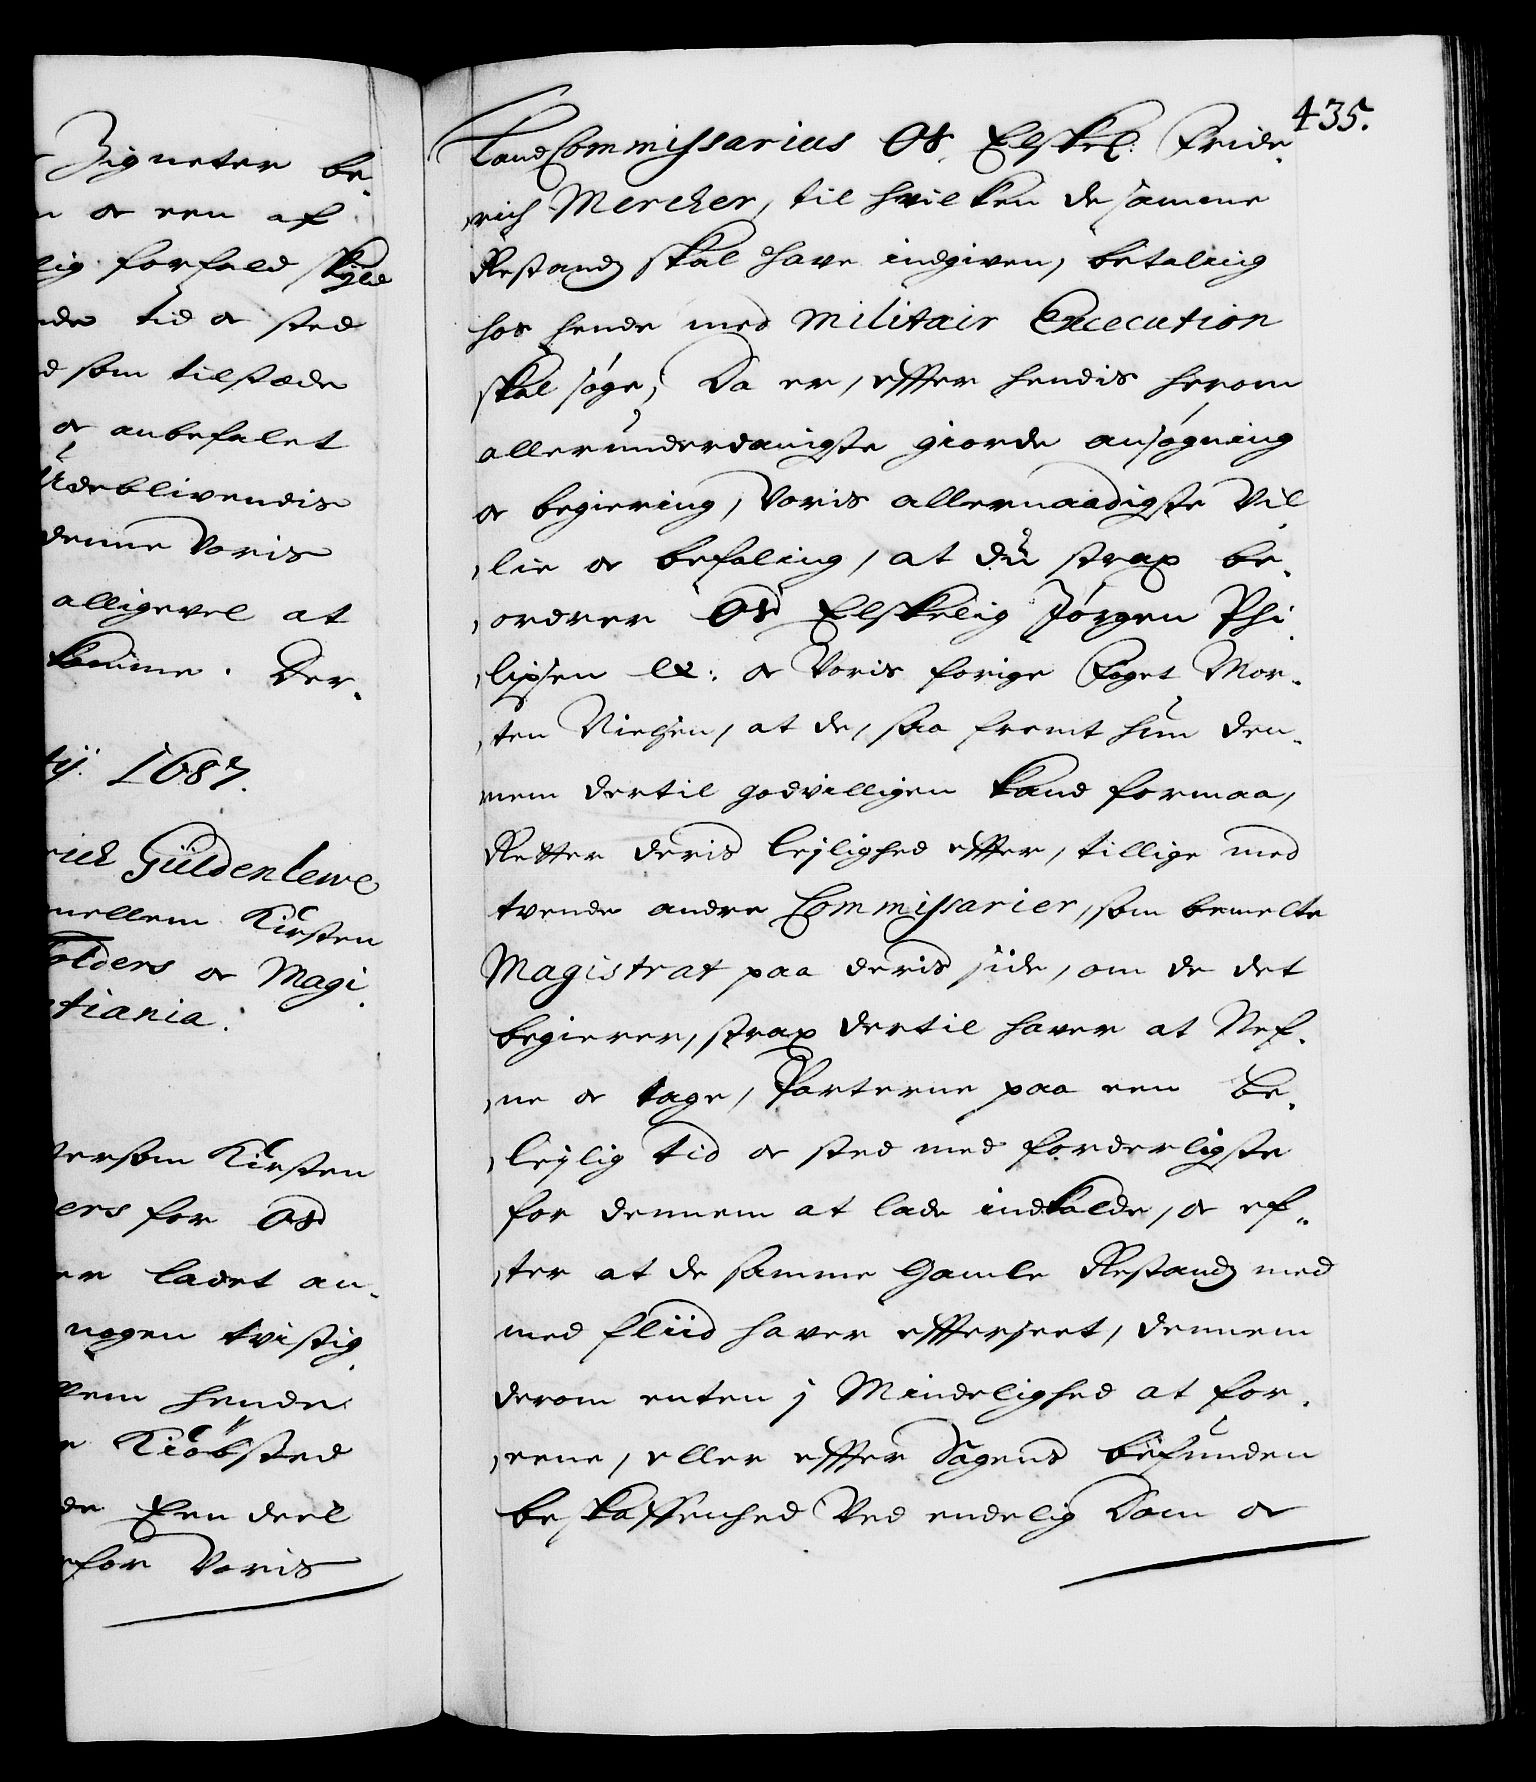 Zigneter be-
n oc een af
lig forfald skyld
nde tid oc sted
d som tilstæde
oc anbefalet
Udeblivendis
denne Voris
alligevel at
komme. Der-
ty: 1687.
rich Güldenlewe
mellem Kirsten
folders oc Magi-
tiania.
ersom Kirsten
ers for Os
er ladet an-
nogen tvistig-
lem hende
e Kiöbsted
de Een deel
for Voris
435.
Land Commissarius Os Elskel: Fride-
rich Mercker, til hvilken de samme
Restands skal have indgiven, betaling
hos hende med Militair Execution
skal søge; Da er, effter hendis herom
allerunderdanigste giorde ansøgning
oc begiering, Voris allernaadigste Vil
lie oc befaling, at dü strax be-
ordrer Os Elskelig Jörgen Phi-
lipsen &: oc Voris forige Foget Mor-
ten Nielsen, at de, saa fremt hun den-
nem dertil godvilligen kand formaa,
Retter deris leylighed effter, tillige med
tvende andre Commissarier, som bemelte
Magistrat paa deris side, om de det
begierer, strax dertil haver at Nef-
ne oc tage, Parterne paa een be-
leylig tid oc sted med forderligste
for dennem at lade indkalde, oc ef-
ter at de samme Gamle Restands med
med fliid haver efferseet, dennem
derom enten j Mindelighed at for-
eene, eller effter Sagens befunden
beskaffenhed Ved endelig Dom oc